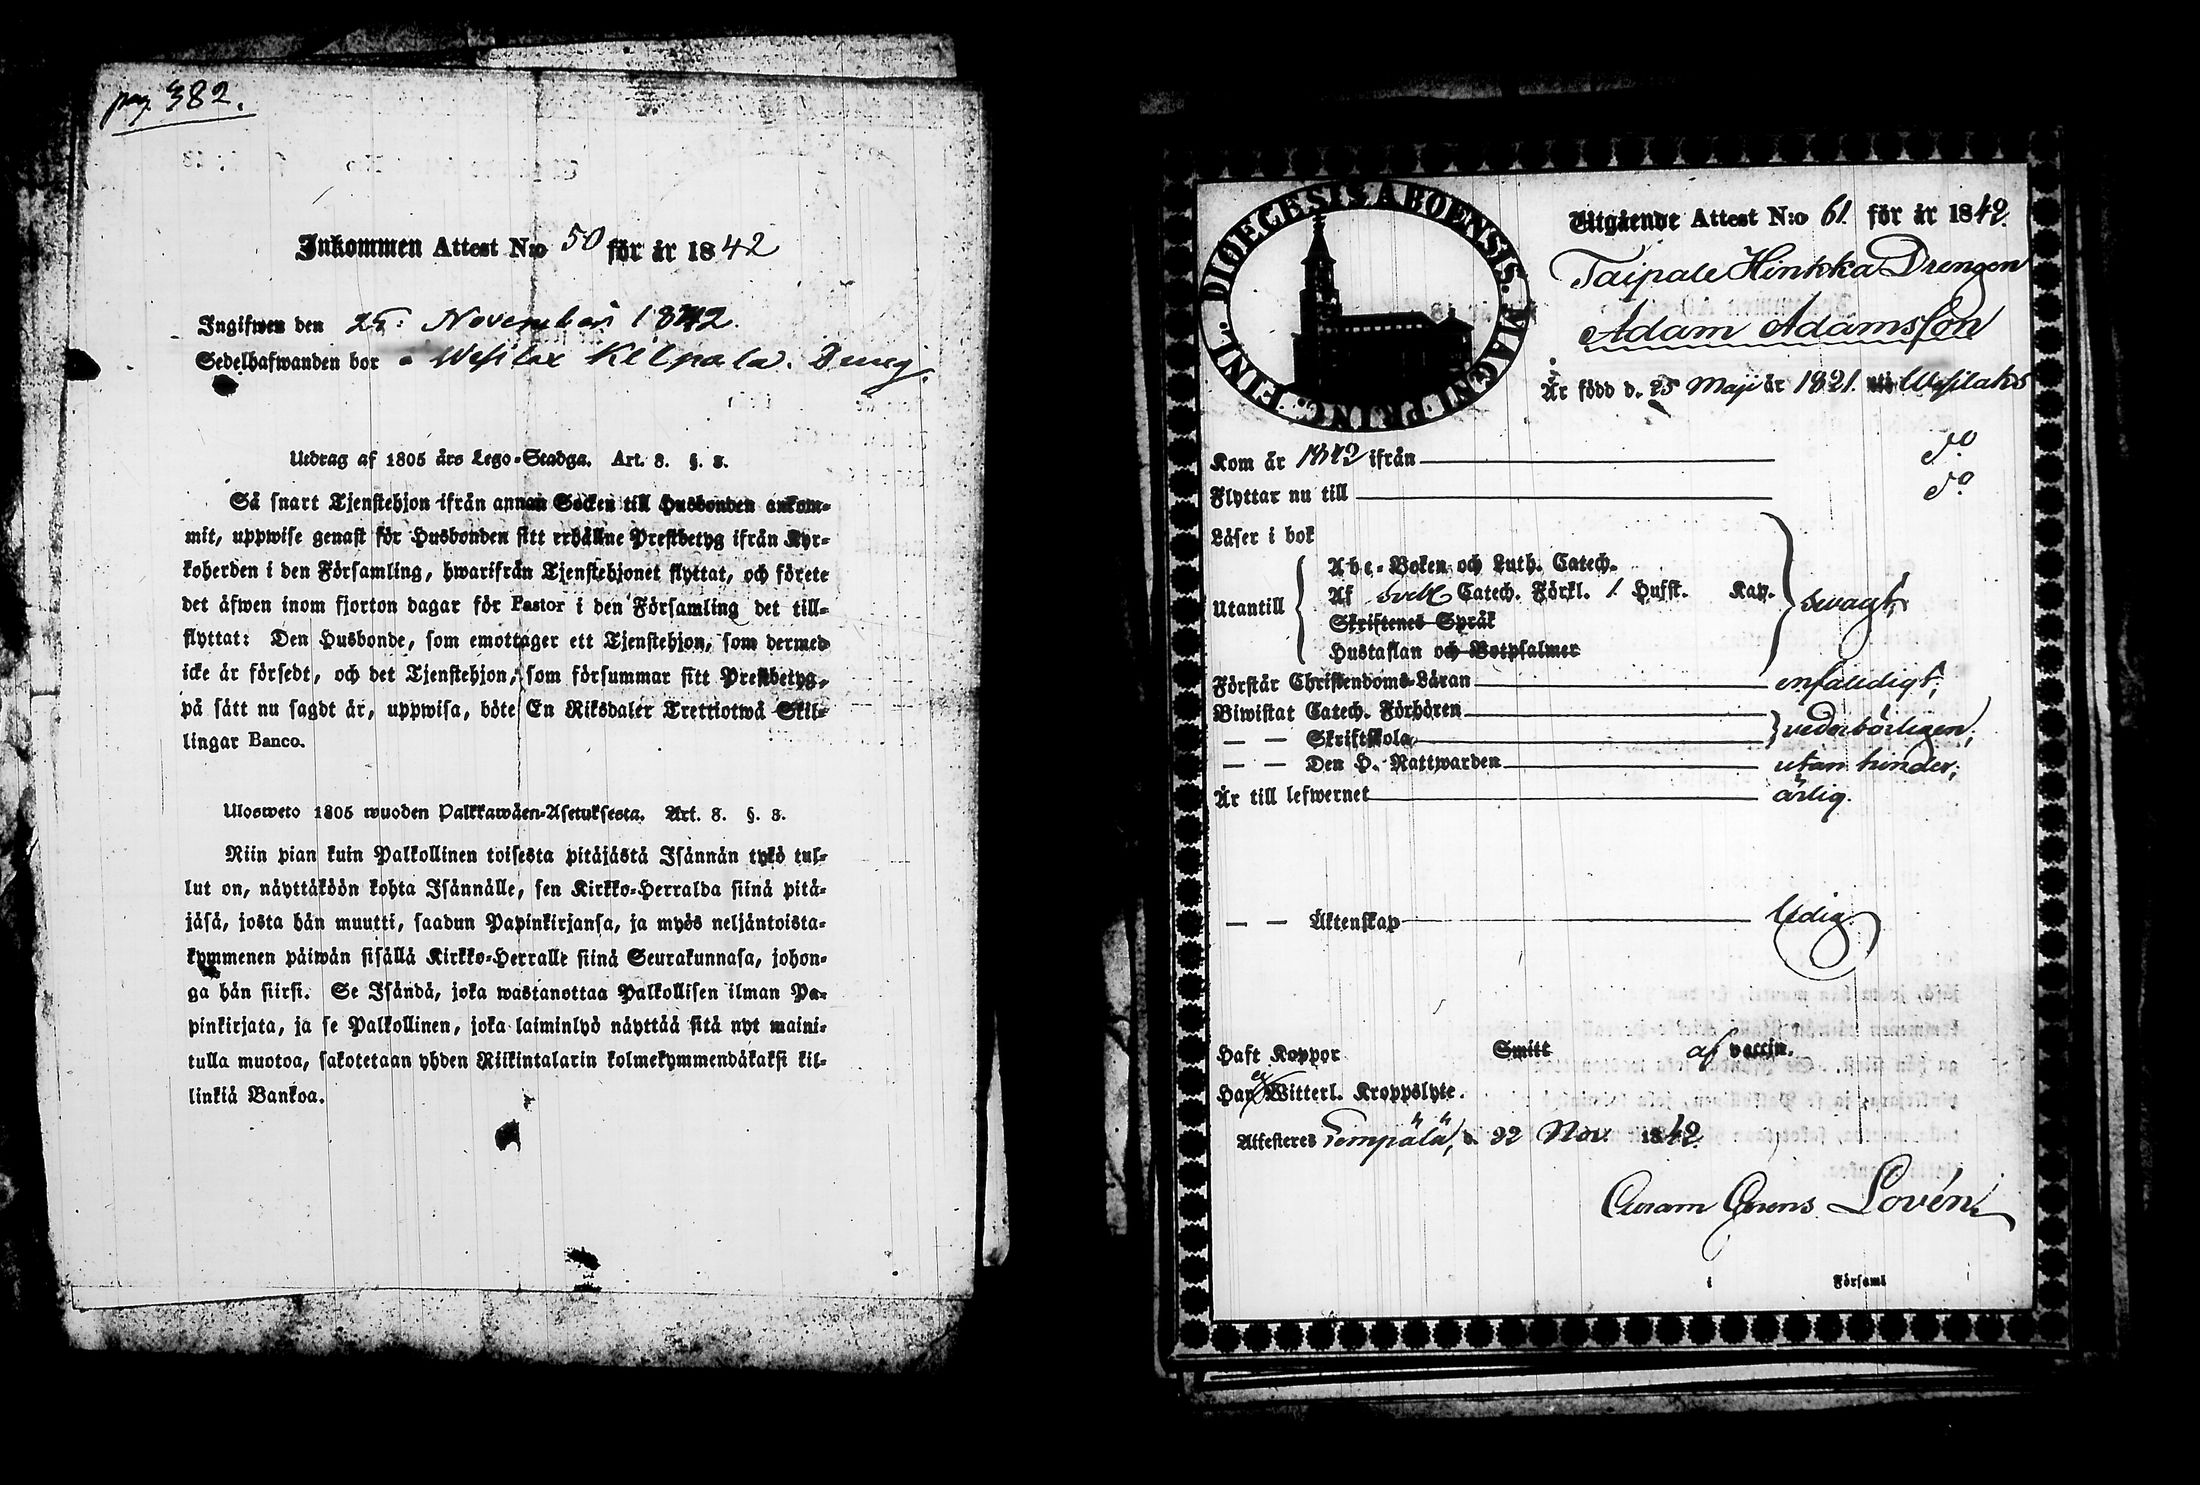 pag. 382.
Inkommen Attest N:o 50 för år 1842
Ingifwen den 25: November 1842.
Sedelhafwanden bor Wesilax Kelpala. Dreng.
Utdrag af 1805 års Lego-Stadga. Art. 8. §. 8.
Så snart Tjenstehjon ifrån annan Socken till Husbonden ankom-
mit, uppwise genast för Husbonden sitt erhållne Prestbetyg ifrån Kyr-
koherden i den Församling, hwarifrån Tjenstehjonet flyttat, och förete
det äfwen inom fjorton dagar för Pastor i den Församling det till-
flyttat: Den Husbonde, som emottager ett Tjenstehjon, som dermed
icke är försedt, och det Tjenstehjon, som försummar sitt Prestbetyg,
på sätt nu sagdt är, uppwisa, böte En Riksdaler Trettiotwå Skil-
lingar Banco.
Ulosweto 1805 wuoden Palkkawäen-Asetuksesta. Art. 8. §. 8.
Niin pian kuin Palkollinen toisesta pitäjästä Isännän tykö tul-
lut on, näyttäköön kohta Isännälle, sen Kirkko-Herralda siinä pitä-
jäsä, josta hän muutti, saadun Papinkirjansa, ja myös neljäntoista-
kymmenen päiwän sisällä Kirkko-Herralle siinä Seurakunnasa, johon-
ga hän siirsi. Se Isändä, joka wastanottaa Palkollisen ilman Pa-
pinkirjata, ja se Palkollinen, joka laiminlyö näyttää sitä nyt maini-
tulla muotoa, sakotetaan yhden Riikintalarin kolmekymmendäkaksi kil-
linkiä Bankoa.
DIOECESIS ABOENSIS. MAGNI PRINC. FINL.
Utgående Attest N:o 61. för år 1842.
Taipale Hinkka Drengen
Adam Adamsson
Är född d. 25 Maji år 1821. uti Wesilaks
Kom år 1842 ifrån do
Flyttar nu till do
Läser i bok
Abc-Boken och Luth. Catech.
Utantill Af Sveb Catech. Förkl. 1 Hufst. Kap. swagt;
Skriftenes Språk
Hustaflan och Botpsalmer
Förstår Christendoms-Läran enfaldigt;
Biwistat Catech. Förhören vederbörligen;
— — Skriftskola
— — Den H. Nattwarden utan hinder;
Är till lefwernet ärlig.
— — Äktenskap Ledig.
Haft Koppor Smitt af vaccin.
Har ej Witterl. Kroppslyte.
Attesteres Lempälä, d. 22 Nov. 1842.
Curam Gerens Lovén.
i Församl